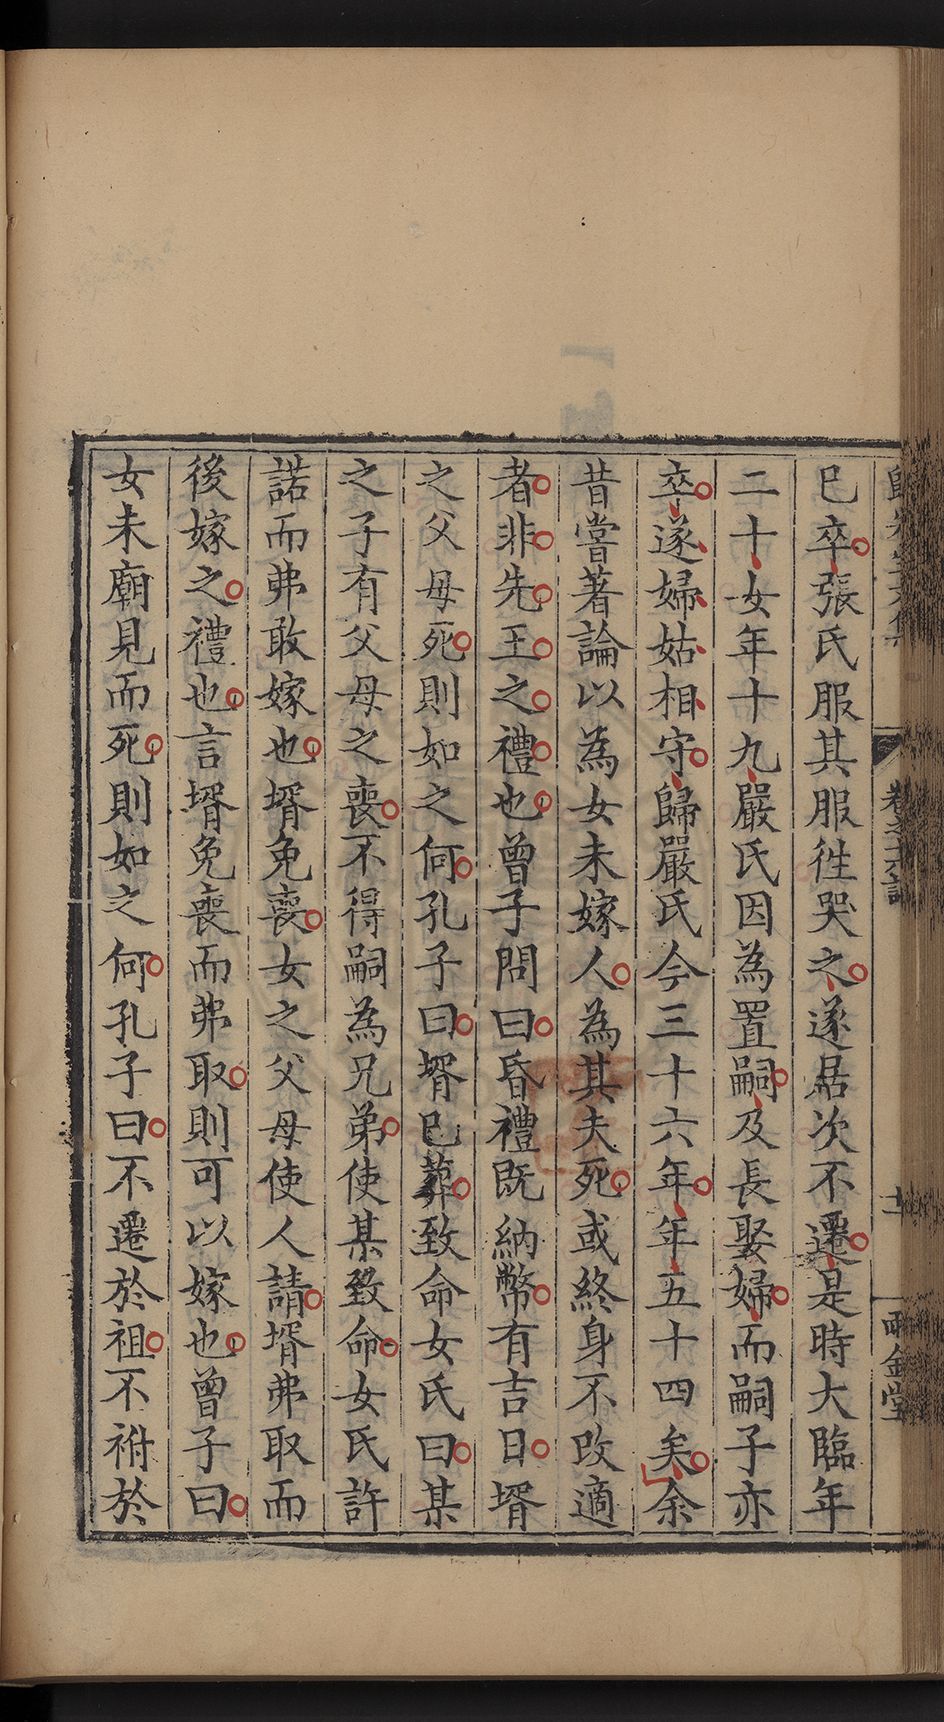 巳卒張氏服其服徃哭之遂居次不遷是時大臨年
二十女年十九嚴氏因為置嗣及長娶婦而嗣子亦
卒遂婦姑相守歸嚴氏今三十六年年五十四矣余
昔嘗著論以為女未嫁人為其夫死或終身不改適
者非先王之禮也曾子問曰昏禮既納幣有吉日壻
之父母死則如之何孔子曰壻巳葬致命女氏曰某
之子有父母之喪不得嗣為兄弟使某致命女氏許
諾而弗敢嫁也壻免喪女之父母使人請壻弗取而
後嫁之禮也言壻免喪而弗取則可以嫁也曾子曰
女未廟見而死則如之何孔子曰不遷於祖不祔於